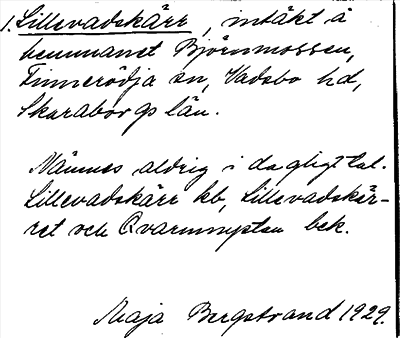 1. Lillevadskärr, intäkt å
hemmanet Björnmossen,
Finnerödja sn, Vadsbo hd,
Skaraborgs län.
Nämnes aldrig i dagligt tal.
Lillevadskärr kb, Lillevadskär-
ret och Qvarnmyrten bek.
Maja Bergstrand 1929.